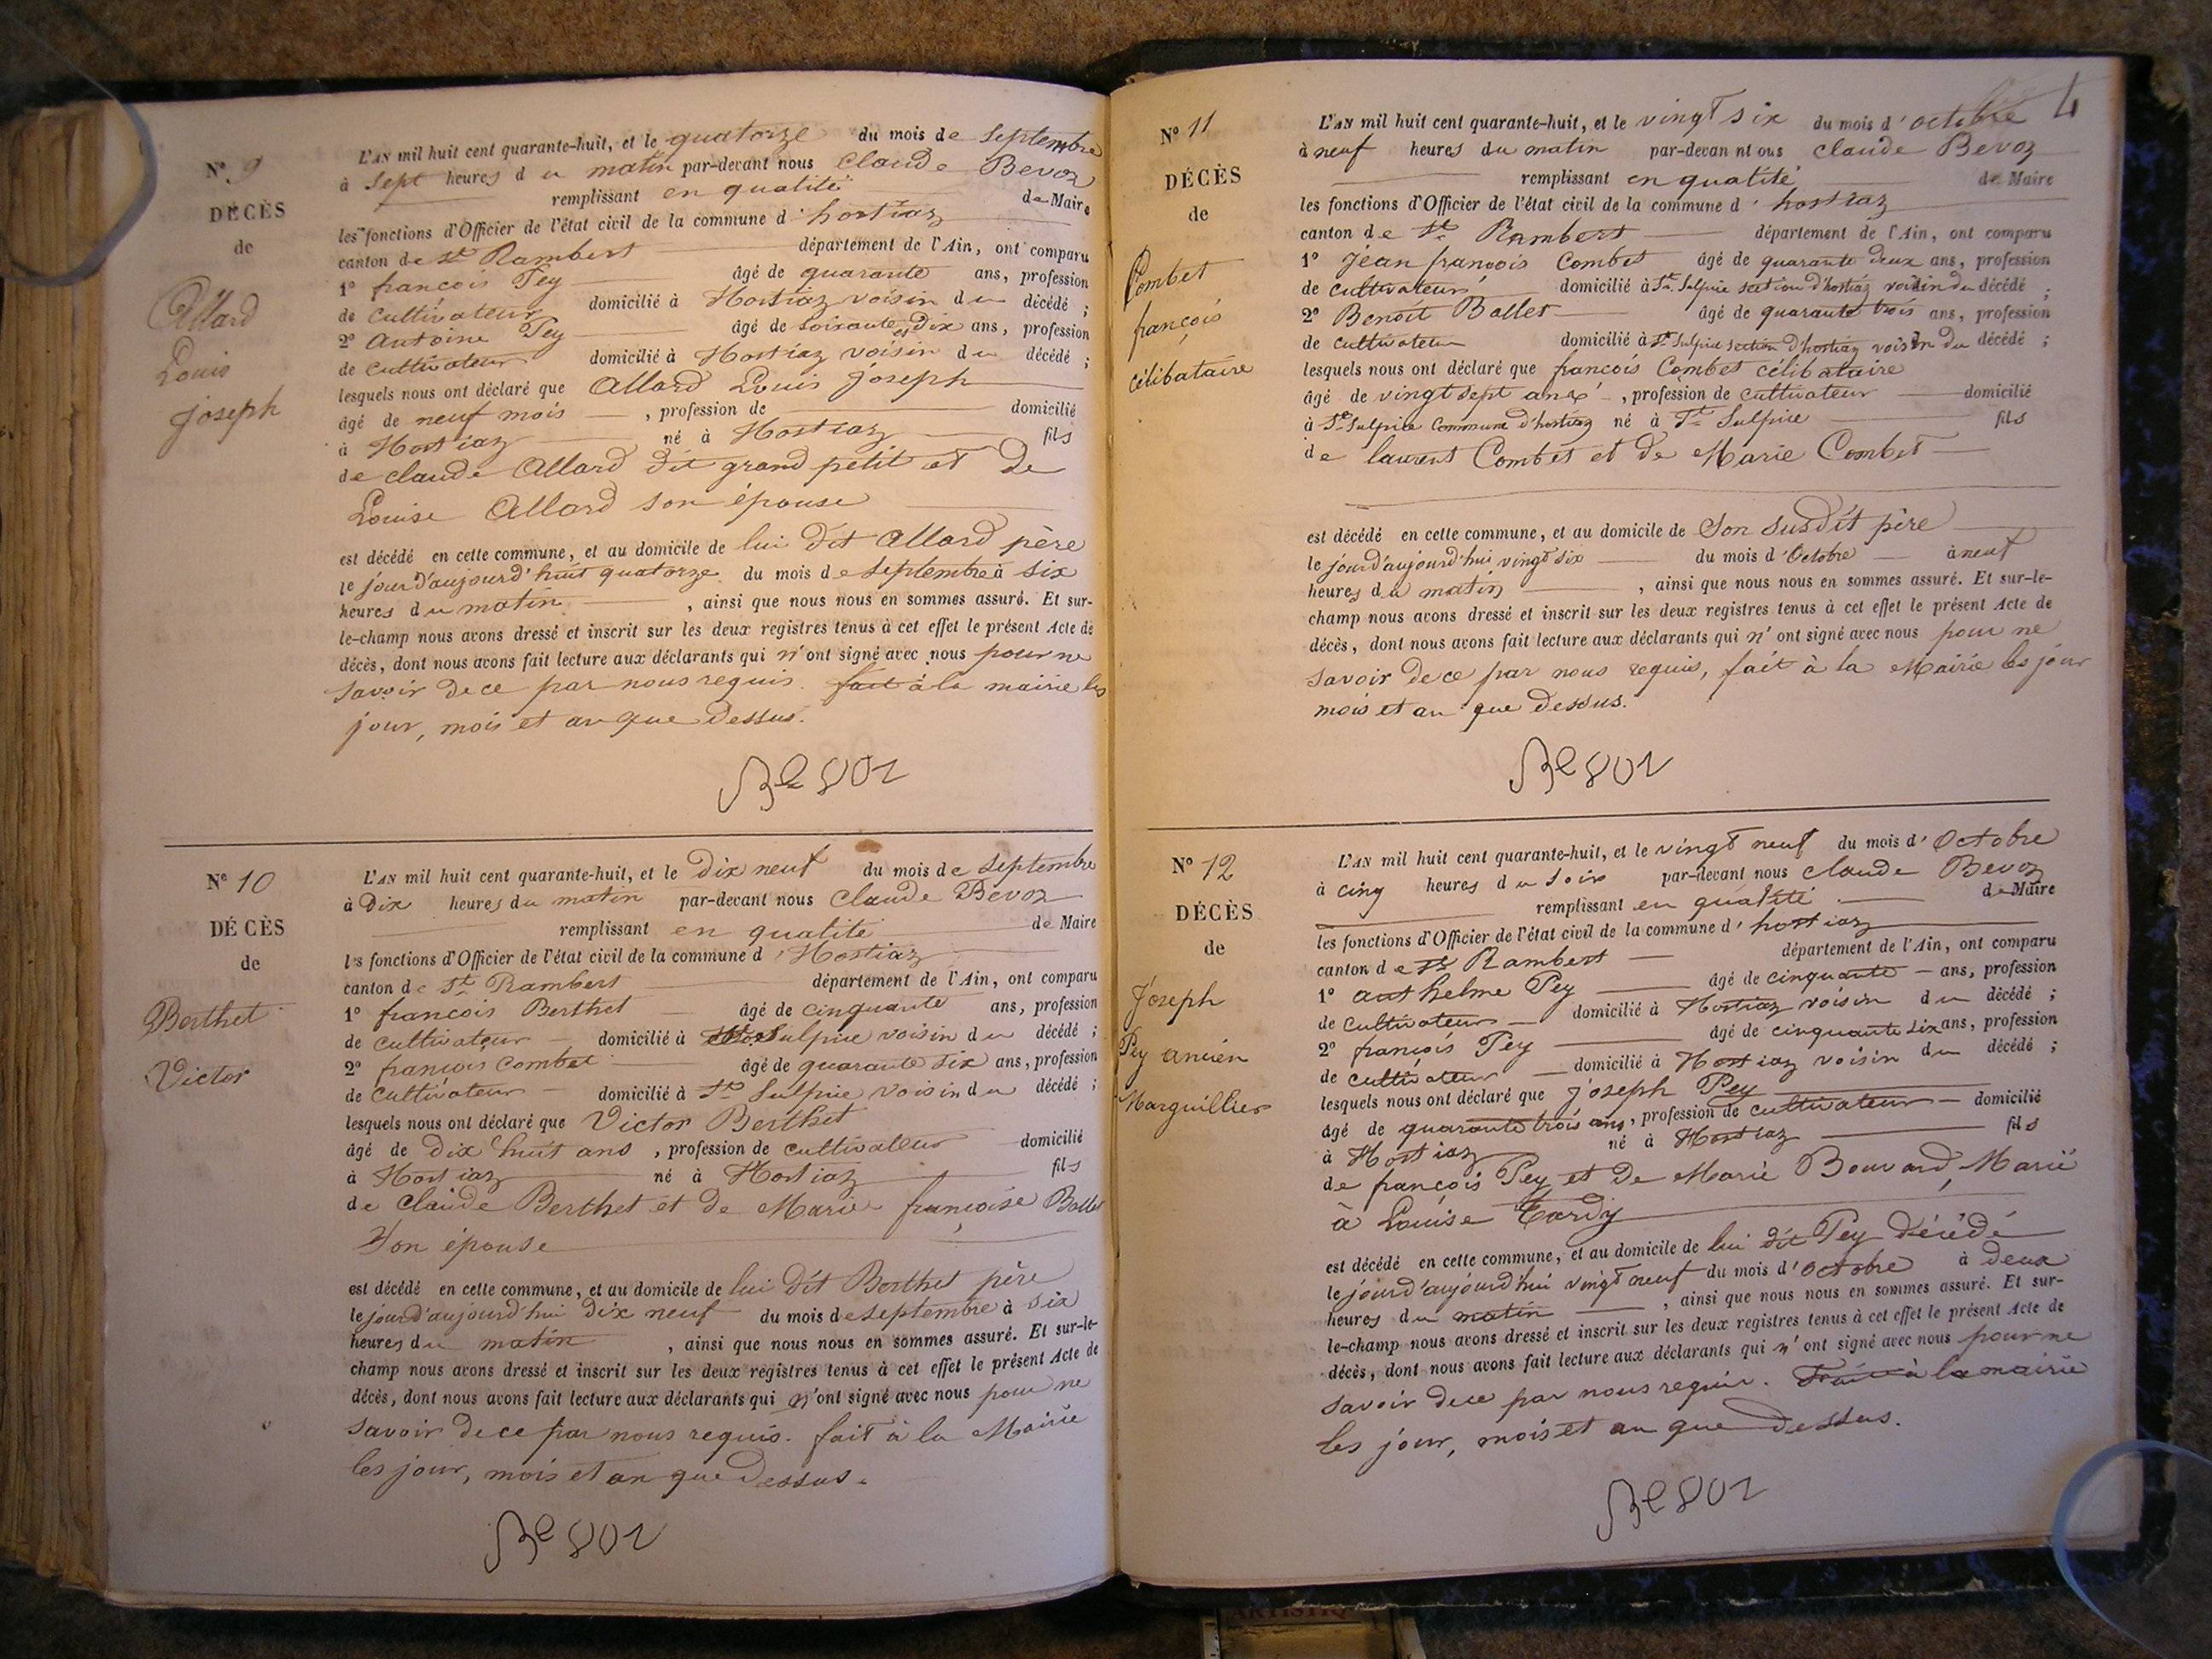 Nº. 9
DÉCÈS
de
Allard
Louis
joseph
L'AN mil huit cent quarante-huit, et le quatorze du mois de septembre
à sept heures du matin par-devant nous claude Bevoz
remplissant en qualité de Maire
les fonctions d'Officier de l'état civil de la commune d'hostiaz
canton de St Rambert département de l'Ain, ont comparu
1º francois Pey âgé de quarante ans, profession
de cultivateur domicilié à Hostiaz voisin du décédé ;
2º Antoine Pey âgé de soixante et Dix ans, profession
de cultivateur domicilié à Hostiaz voisin du décédé ;
lesquels nous ont déclaré que Allard Louis joseph
âgé de neuf mois , profession de domicilié
à Hostiaz né à Hostiaz fils
de claude Allard dit grand petit et De
Louise Allard son épouse
est décédé en cette commune, et au domicile de lui dit Allard père
le jourd'aujourd'huit quatorze du mois de septembre à six
heures du matin , ainsi que nous nous en sommes assuré. Et sur-
le-champ nous avons dressé et inscrit sur les deux registres tenus à cet effet le présent Acte de
décès, dont nous avons fait lecture aux déclarants qui n'ont signé avec nous pour ne
savoir de ce par nous requis. fait à la mairie les
jour, mois et an que Dessus.
Bevoz
Nº 10
DÉCÈS
de
Berthet
Victor
L'AN mil huit cent quarante-huit, et le Dix neuf du mois de septembre
à Dix heures du matin par-devant nous Claude Bevoz
remplissant en qualité de Maire
les fonctions d'Officier de l'état civil de la commune d'Hostiaz
canton de St Rambert département de l'Ain, ont comparu
1º francois Berthet âgé de cinquante ans, profession
de cultivateur domicilié à Sulpice voisin du décédé ;
2º francois Combet âgé de quarante six ans, profession
de cultivateur domicilié à St Sulpice voisin du décédé ;
lesquels nous ont déclaré que Victor Berthet
âgé de Dix huit ans , profession de cultivateur domicilié
à Hostiaz né à Hostiaz fils
de Claude Berthet et de Marie françoise Ballet
Son épouse
est décédé en cette commune, et au domicile de lui dit Berthet père
le jourd'aujourd'hui Dix neuf du mois de septembre à six
heures du matin , ainsi que nous nous en sommes assuré. Et sur-le-
champ nous avons dressé et inscrit sur les deux registres tenus à cet effet le présent Acte de
décès, dont nous avons fait lecture aux déclarants qui n'ont signé avec nous pour ne
savoir de ce par nous requis. fait à la Mairie
les jour, mois et an que Dessus.
Bevoz
4
Nº 11
DÉCÈS
de
Combet
françois
célibataire
L'AN mil huit cent quarante-huit, et le vingt six du mois d'octobre
à neuf heures du matin par-devan nt ous claude Bevoz
remplissant en qualité de Maire
les fonctions d'Officier de l'état civil de la commune d'hostiaz
canton de St Rambert département de l'Ain, ont comparu
1º Jean françois Combet âgé de quarante deux ans, profession
de cultivateur domicilié à St Sulpice section d'hostiaz voisin du décédé ;
2º Benoit Ballet âgé de quarante trois ans, profession
de cultivateur domicilié à St Sulpice section d'hostiaz voisin du décédé ;
lesquels nous ont déclaré que françois Combet célibataire
âgé de vingt sept ans , profession de cultivateur domicilié
à St Sulpice Commune d'hostiaz né à St Sulpice fils
de laurent Combet et de Marie Combet
est décédé en cette commune, et au domicile de Son susdit père
le jourd'aujourd'hui vingt six du mois d'Octobre à neuf
heures du matin , ainsi que nous nous en sommes assuré. Et sur-le-
champ nous avons dressé et inscrit sur les deux registres tenus à cet effet le présent Acte de
décès, dont nous avons fait lecture aux déclarants qui n'ont signé avec nous pour ne
savoir de ce par nous requis, fait à la Mairie les jour
mois et an que dessus.
Bevoz
Nº 12
DÉCÈS
de
Joseph
Pey ancien
Marguillier
L'AN mil huit cent quarante-huit, et le vingt neuf du mois d'Octobre
à cinq heures du soir par-devant nous claude Bevoz
remplissant en qualité de Maire
les fonctions d'Officier de l'état civil de la commune d'hostiaz
canton de St Rambert département de l'Ain, ont comparu
1º anthelme Pey âgé de cinquante ans, profession
de cultivateur domicilié à Hostiaz voisin du décédé ;
2º françois Pey âgé de cinquante six ans, profession
de cultivateur domicilié à Hostiaz voisin du décédé ;
lesquels nous ont déclaré que joseph Pey
âgé de quarante trois ans, profession de cultivateur domicilié
à Hostiaz né à Hostiaz fils
de françois Pey et De Marie Bouvard, Marié
à Louise Tardy
est décédé en cette commune, et au domicile de lui dit Pey Décédé
le jourd'aujourd'hui vingt neuf du mois d'octobre à deux
heures du matin , ainsi que nous nous en sommes assuré. Et sur-
le-champ nous avons dressé et inscrit sur les deux registres tenus à cet effet le présent Acte de
décès, dont nous avons fait lecture aux déclarants qui n'ont signé avec nous pour ne
savoir de ce par nous requis. Fait à la mairie
les jour, mois et an que dessus.
Bevoz
ARTISTIQ